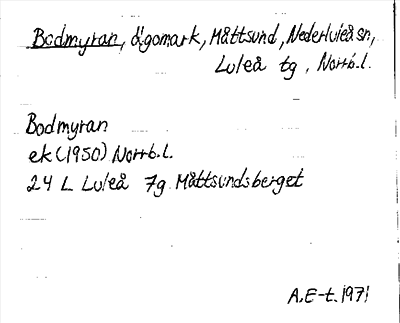 Bodmyran, ägomark, Måttsund, Nederluleå sn,
Luleå tg, Norrb.l.
Bodmyran
ek (1950) Norrb.l.
24 L Luleå 7g Måttsundsberget
A.E-t. 1971